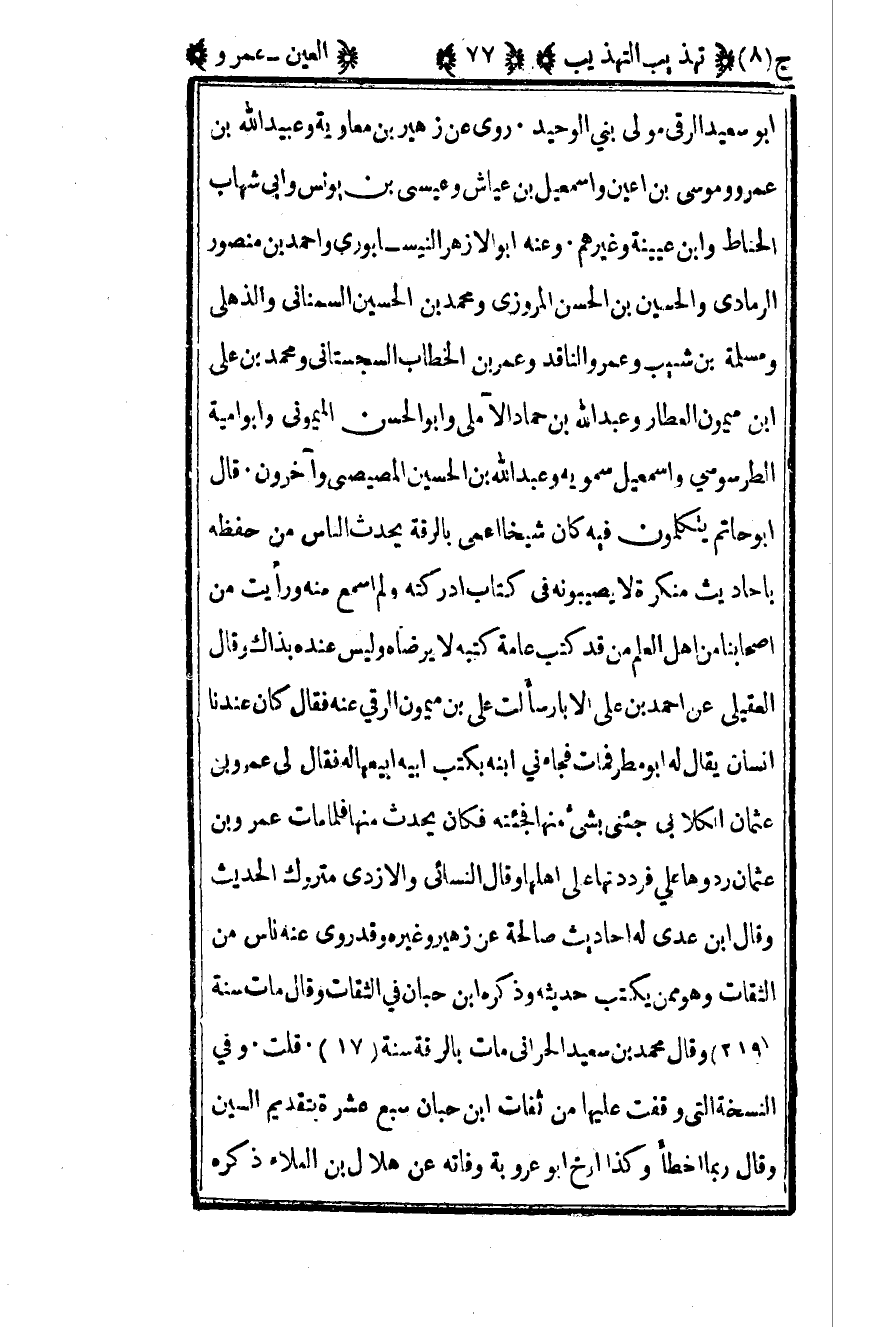 ج(٨) تهذيب التهذيب ٧٧ العين - عمرو
ابو سعيد الرقى مولى بني الوحيد ٠ روى عن زهير بن معاوية وعبيد الله بن
عمرو وموسى بن اعين واسمعيل بن عياش وعيسى بن يونس وابى شهاب
الحناط وابن عيينة وغيرهم ٠ وعنه ابو الازهر النيسابورى واحمد بن منصور
الرمادى والحسين بن الحسن المروزى ومحمد بن الحسين السمنانى والذهلى
ومسلمة بن شبيب وعمرو الناقد وعمر بن الخطاب السجستانى ومحمد بن على
ابن ميمون العطار وعبد الله بن حماد الآملى وابو الحسن الميمونى وابوامية
الطرسوسي واسمعيل سمويه وعبد الله بن الحسين المصيصى وآخرون ٠ قال
ابو حاتم يتكلمون فيه كان شيخا اعمى بالرقة يحدث الناس من حفظه
باحاديث منكرة لا يصيبونه فى كتاب ادركته ولم اسمع منه ورأيت من
اصحابنا من اهل العلم من قد كتب عامة كتبه لا يرضاه وليس عنده بذاك وقال
العقيلى عن احمد بن على الابار سألت على بن ميمون الرقي عنه فقال كان عندنا
انسان يقال له ابو مطر فمات فجاءني ابنه بكتب ابيه ابيعها له فقال لى عمرو بن
عثمان الكلابى جئنى بشىء منها فجئته فكان يحدث منها فلما مات عمرو بن
عثمان ردوها علي فرددتها على اهلها وقال النسائى والازدى متروك الحديث
وقال ابن عدى له احاديث صالحة عن زهير وغيره وقد روى عنه ناس من
الثقات وهو ممن يكتب حديثه وذكره ابن حبان في الثقات وقال مات سنة
(٢١٩) وقال محمد بن سعيد الحرانى مات بالرقة سنة (١٧) ٠ قلت ٠ وفي
النسخة التى وقفت عليها من ثقات ابن حبان سبع عشرة بتقديم السين
وقال ربما اخطأ وكذا ارخ ابو عروبة وفاته عن هلال بن العلاء ذكره